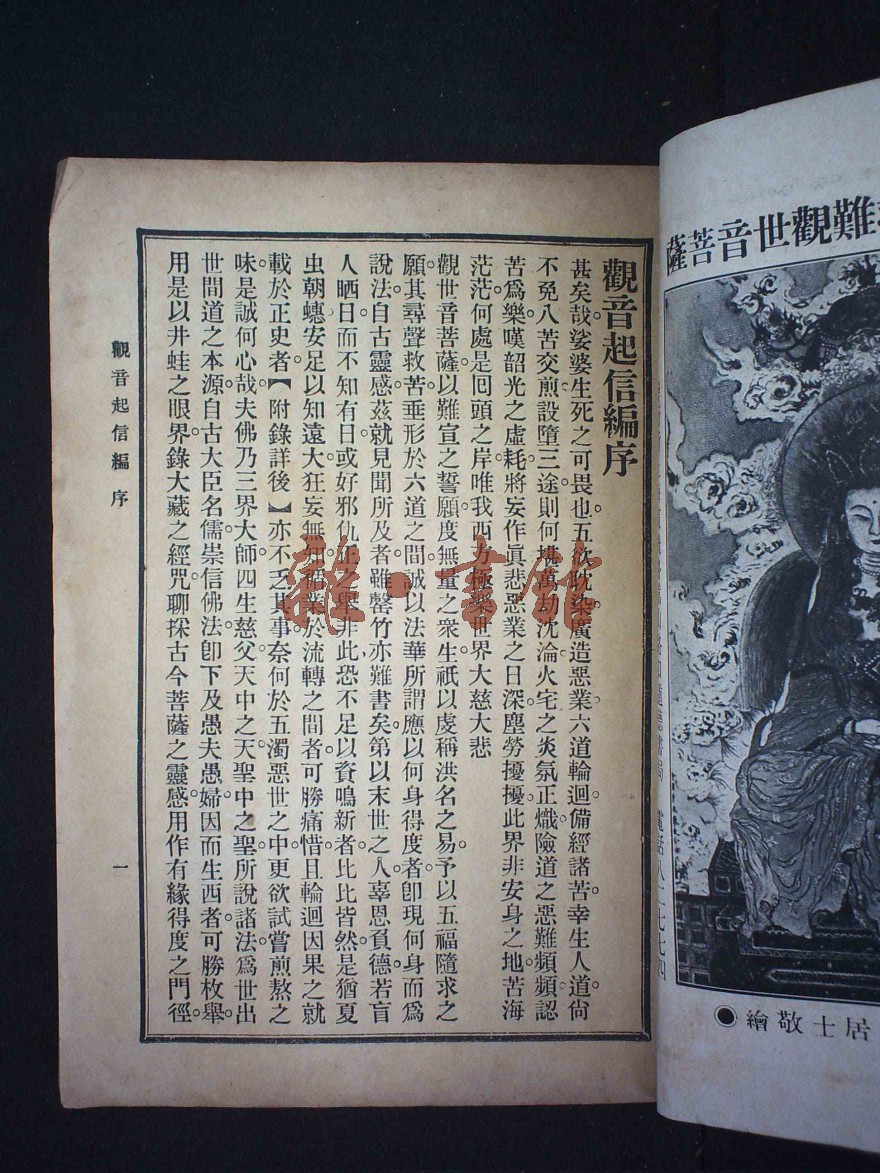 觀音起信編序
甚矣哉。娑婆生死之可畏也。五欲躭染。廣造惡業。六道輪迴。備經諸苦。幸生人道。尙
不免八苦交煎。設墮三途。則何堪萬劫沈淪。火宅之炎氛正熾。險道之惡難頻頻。認
苦爲樂。嘆韶光之虛耗。將妄作眞。悲惡業之日深。塵勞擾擾。此界非安身之地。苦海
茫茫。何處是囘頭之岸。唯我西方極樂世界大慈大悲
觀世音菩薩。以難宣之誓願。度無量之衆生。祇以虔稱洪名之易。予以五福隨求之
願。其尋聲救苦。垂形於六道之間。誠以法華所謂應以何身得度者。卽現何身而爲
說法。自古靈感。茲就見聞所及者。雖罄竹亦難書矣。第以末世之人。辜恩負德。若盲
人晒日而不知有日。或好邪仇正之舉。非此恐不足以資鳴新者。比比皆然。是猶夏
虫朝蟪。安足以知遠大。狂妄無知。造業於流轉之間者。可勝痛惜。且輪迴因果之就
載於正史者【附錄詳後】亦不乏其事。奈何於五濁惡世之中。更欲試嘗煎熬之
味。是誠何心哉。夫佛乃三界大師。四生慈父。天中之天。聖中之聖。所說諸法。爲世出
世間道之本源。自古大臣名儒。崇信佛法。卽下及愚夫愚婦。因而生西者。可勝枚舉。
用是以井蛙之眼界。錄大藏之經咒。聊採古今菩薩之靈感。用作有緣得度之門徑。
觀音起信編 序
一
難觀世音菩薩
電話八二七七四
居士敬繪●
龍一書館